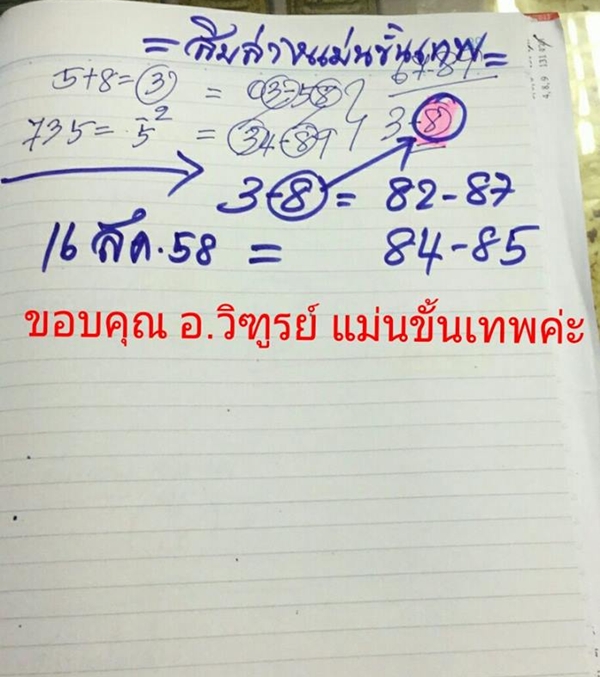 = สิบล้านแม่นขั้นเทพ =
5+8=3 = 03-58 67-87
735=5² = 34-89 3-8
3-8 = 82-87
16 สค.58 = 84-85
ขอบคุณ อ.วิฑูรย์ แม่นขั้นเทพค่ะ